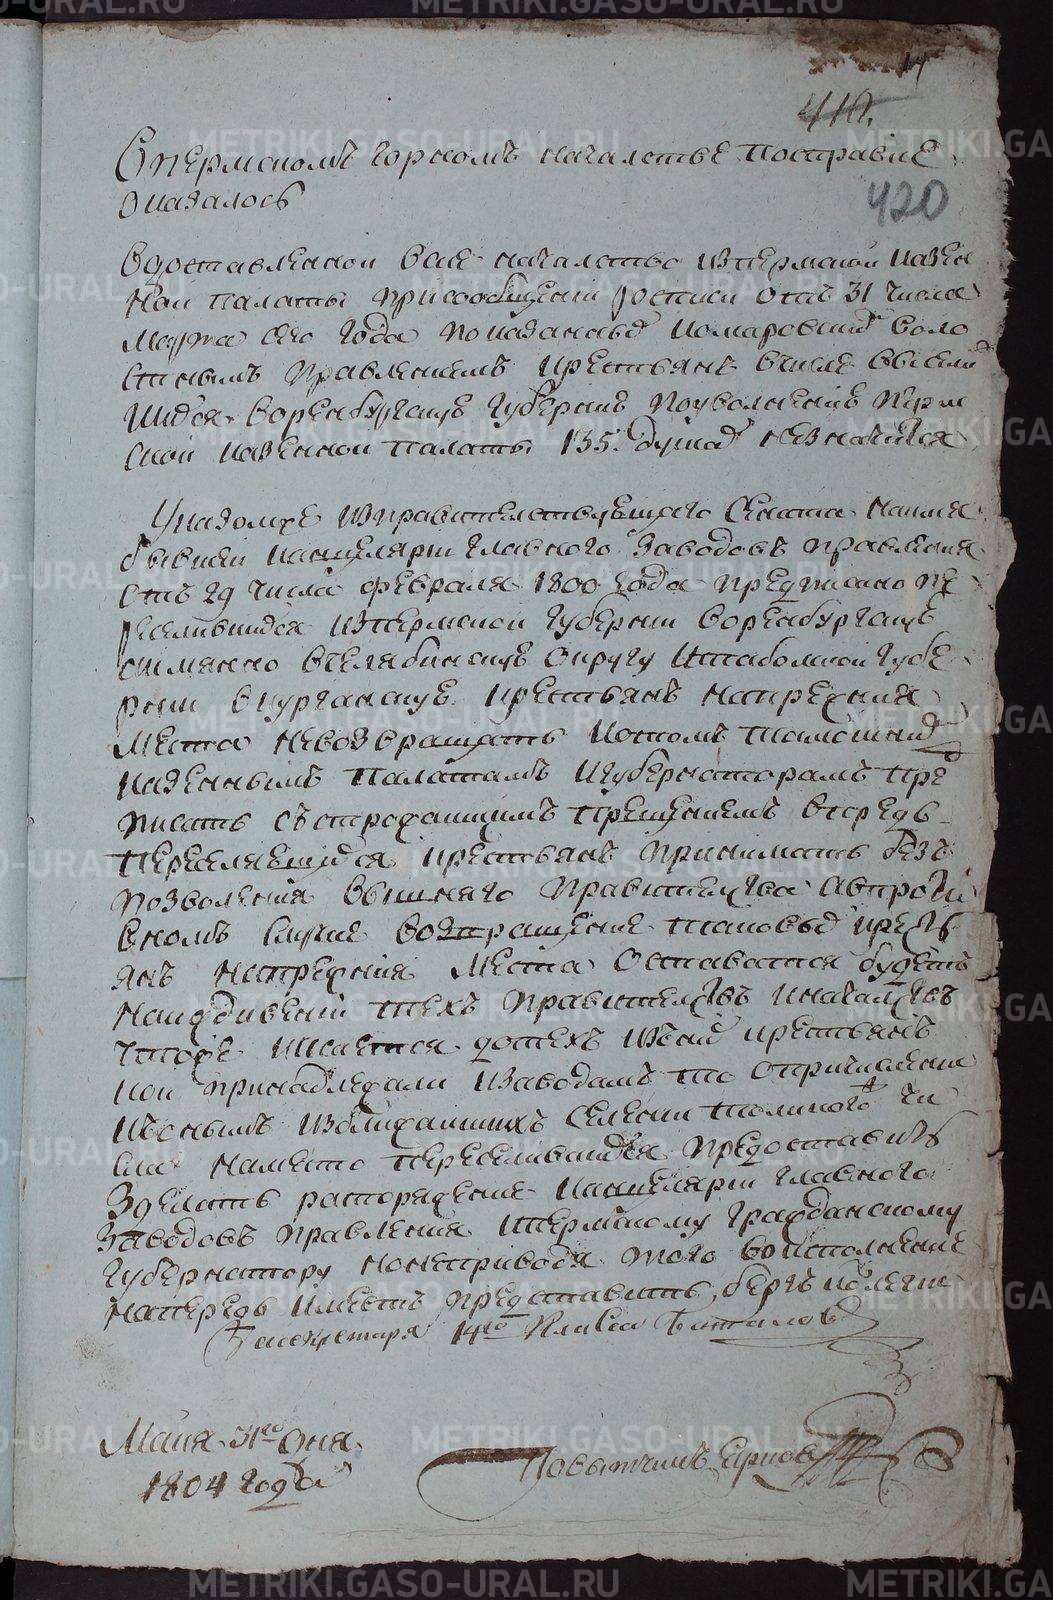 14
410.
Впермскомъ горномъ начальстве посправке
оказалось
420
вдоставленной воне начальство изпермской казен
ной палаты присообщении росписи отъ 31 числа
марта сего года показанныхъ комаровскимъ воло
стнымъ правлениемъ крестьянъ вчисле выселив
шихся воренбургскую губернию поувольнению перм
ской казенной палаты 135. душахъ незначится
Указомже изправительствующаго сената наимя
бывшей канцелярии главного заводовъ правления
отъ 29 числа февраля 1800 года предписано пе
реселившихся изпермской губернии воренбургскую
аимянно вчелябинскую округу итобольской губе
рнии вкурганскую крестьянъ напрежния
места невозвращать ипотомъ тамошнимъ
казеннымъ палатамъ игубернаторамъ пре
писать съ строжайшимъ прещениемъ впредь
переселяющихся крестьянъ принимать безъ
позволения вышняго правительства впроти
вномъ случае возпращение таковыхъ кресть
янъ напрежния места оставатся будетъ
наиждивении техъ правительствъ иначальствъ
чтоже касается дотехъ крестьянъ
кои принадлежали кзаводамъ то опричислении
изближайшихъ селении толикого чи
сла наместо переселившихся предоставить
зделать разпоряжение канцелярии главного
заводовъ правления ипермскому гражданскому
губернатору ионеприводя того воисполнение
напередъ имеетъ представить бергъ колегии
секретаря 14го класса
Маия 31го дня
1804 года
Повытчикъ